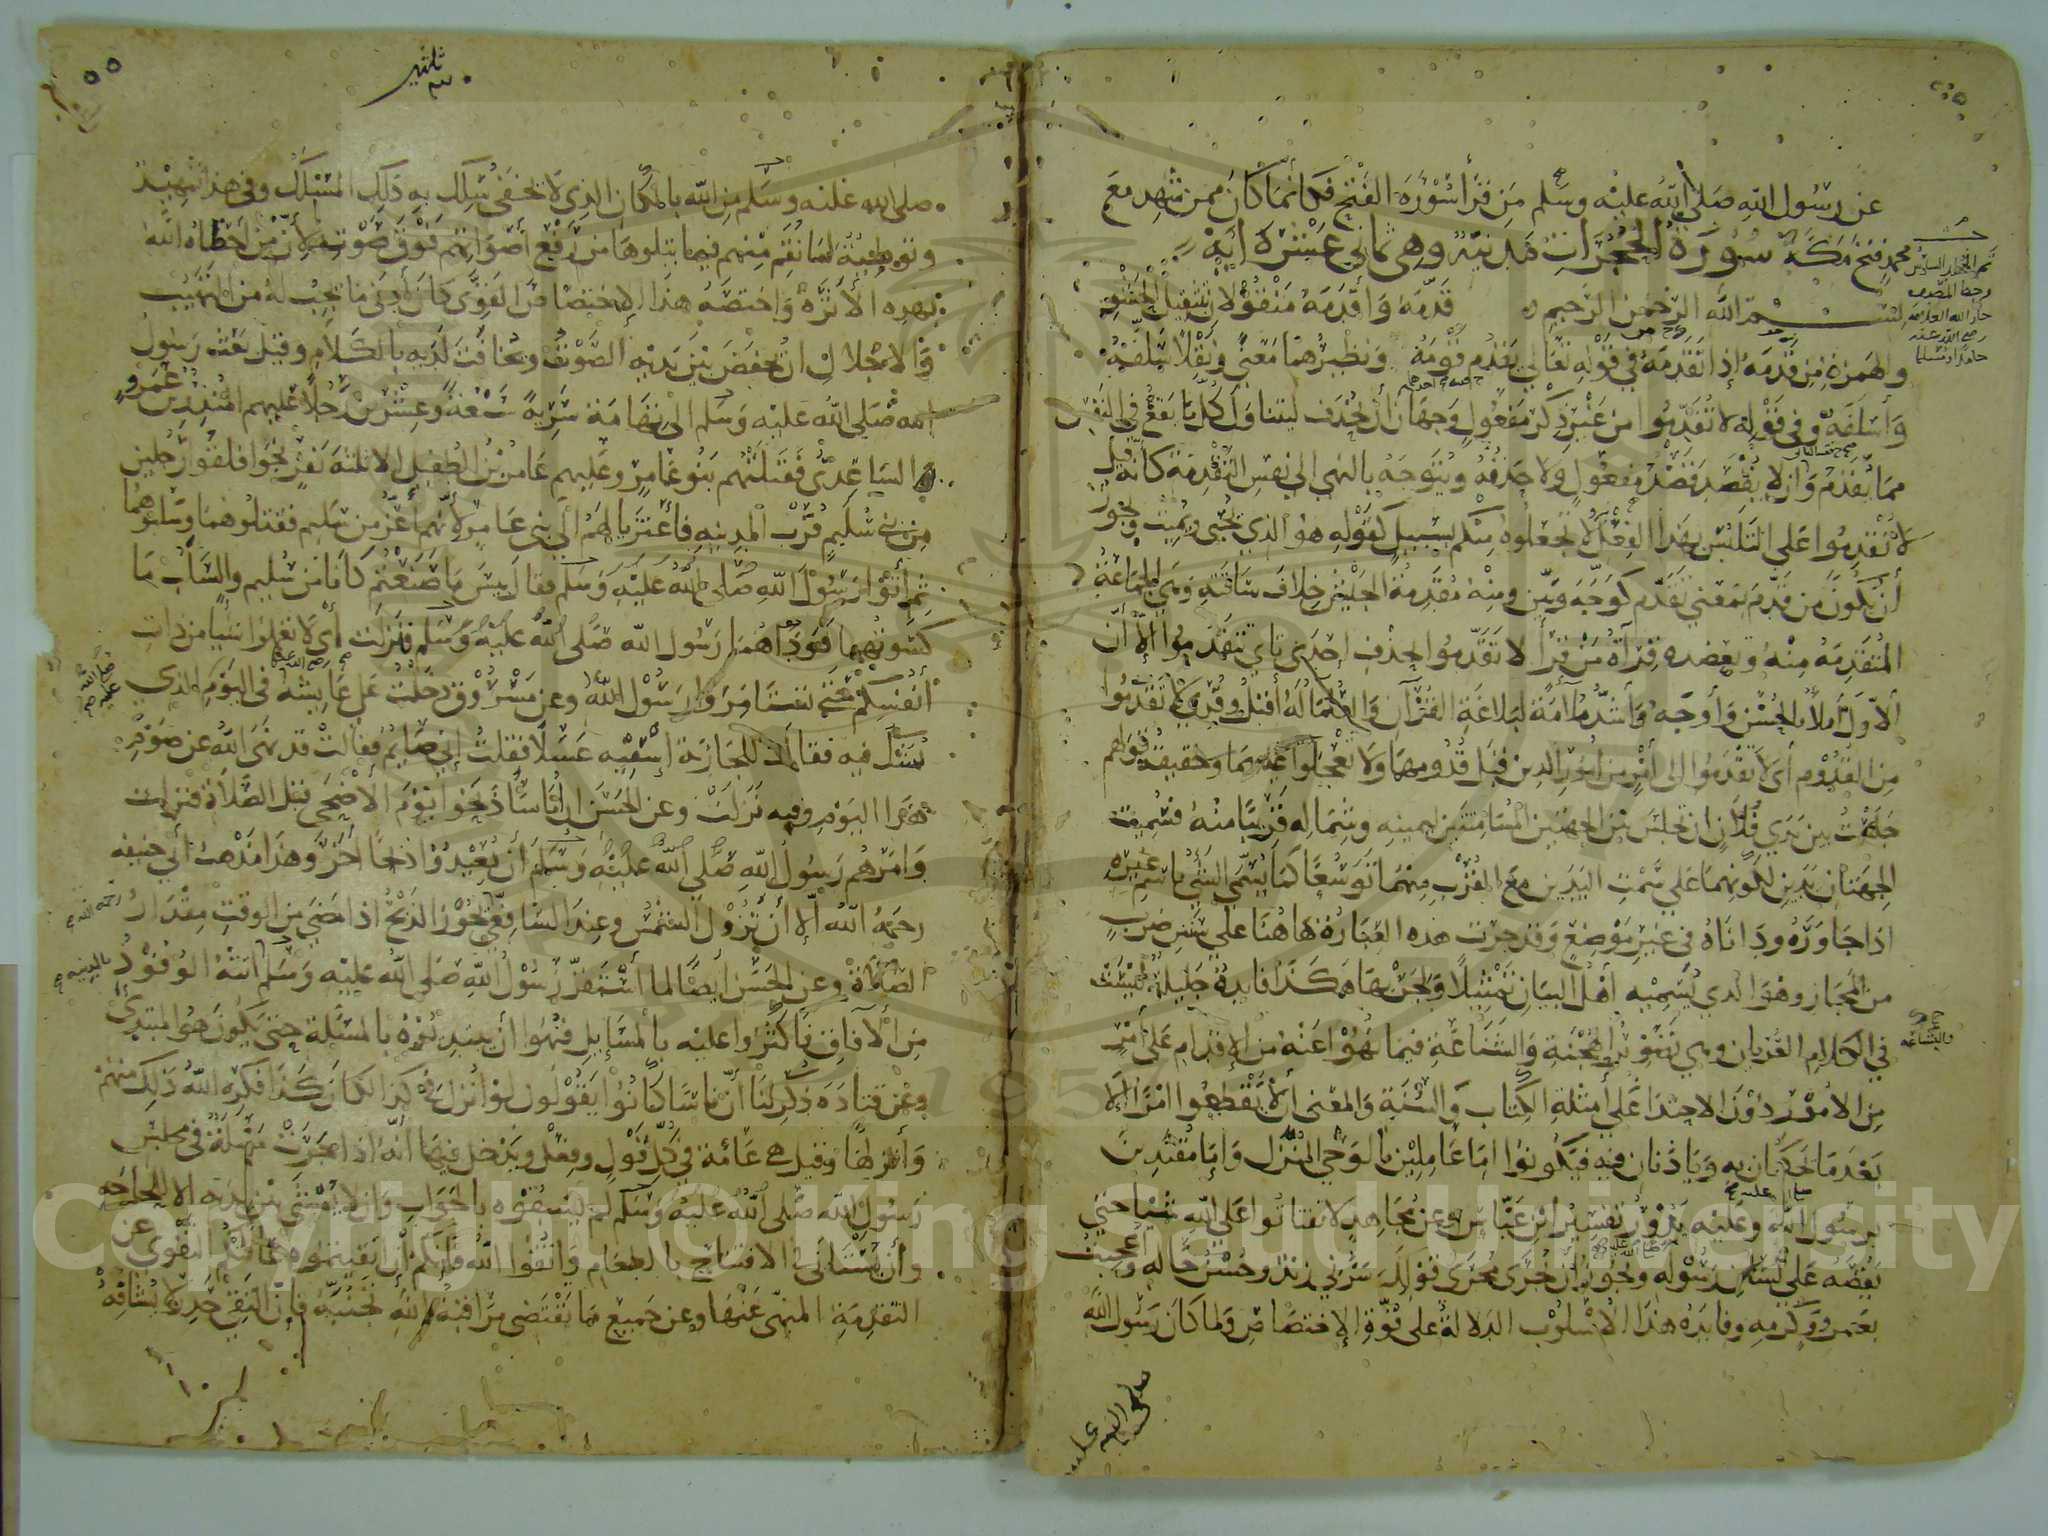 عن رسول الله صلى الله عليه وسلم من قرأ سورة الفتح فكأنما كان ممن شهد مع
محمد فتح مكة سورة الحجرات مدنية وهي ثماني عشرة اية
بسم الله الرحمن الرحيم قدمه وأقدمه منقولان بتثقيل الحشو
والهمزة من قدمه إذا تقدمه في قوله تعالى يقدم قومه ونظيرهما معنى ونقلا سلفه
وأسلفه وفي قوله لا تقدموا من غير ذكر مفعول وجهان أن يحذف ليتناول كل ما يقع في النفس
مما يقدم وأن لا يقصد قصد مفعول ولا حذفه ويتوجه بالنهي الى نفس التقدمة كأنه قيل
لا تقدموا على التلبس بهذا الفعل ولا تجعلوه منكم بسبيل كقوله هو الذي يحيى ويميت ويجوز
أن يكون من قدم بمعنى تقدم كوجه وبين ومنه مقدمة الجيش خلاف ساقته وهي الجماعة
المتقدمة منه وتعضده قراءة من قرأ لا تقدموا بحذف احدى تاي تتقدموا إلا أن
الأول أملأ بالحسن وأوجه وأشد ملآمة لبلاغة القرآن والعلماء له أقبل وقرئ لا تقدموا
من القدوم أي لا تقدموا الى أمر من امور الدين قبل قدومهما ولا تعجلوا عليهما وحقيقة قولهم
جلست بين يدي فلان ان تجلس بين الجهتين المسامتتين ليمينه وشماله قريبا منه فسميت
الجهتان يدين لكونهما على سمت اليدين مع القرب منهما توسعا كما يسمى الشئ باسم غيره
اذا جاوره وداناه في غير موضع وقد جرت هذه العبارة هاهنا على سنن ضرب
من المجاز وهو الذي يسميه أهل البيان تمثيلا ولجريها هكذا فايدة جليلة ليست
في الكلام العريان وهي تصوير الهجنة والشناعة فيما نهوا عنه من الإقدام على أمر
من الأمور دون الاحتذا على أمثلة الكتاب والسنة والمعنى أن لا تقطعوا امرا إلا
بعد ما يحكمان به ويأذنان فيه فتكونوا إما عاملين بالوحي المنزل وإما مقتدين
برسول الله وعليه يدور تفسير ابن عباس وعن مجاهد لا تفتاتوا على الله شيئا حتى
يقصه على لسان رسوله ويجوز أن يجرى مجرى قولك سرني زيد وحسن حاله وأعجبت
بعمرو وكرمه وفايدة هذا الأسلوب الدلالة على قوة الإختصاص ولما كان رسول الله
صلى الله عليه
صلى الله عليه وسلم من الله بالمكان الذي لا يخفى سلك به ذلك المسلك وفي هذا تمهيد
وتوطئة لما نقم منهم فيما يتلوها من رفع أصواتهم فوق صوته لأن من أحظاه الله
بهذه الأثرة واختصه هذا الإختصاص القوي كان أدنى ما يجب له من التهيب
والاجلال ان يخفض بين يديه الصوت ويخافت لديه بالكلام وقيل بعث رسول
الله صلى الله عليه وسلم الى تهامة سرية سبعة وعشرين رجلا عليهم المنذر بن عمرو
الساعدي فقتلتهم بنو عامر وعليهم عامر بن الطفيل الا ثلثة نفر نجوا فلقوا رجلين
من بني سليم قرب المدينه فاعتزيا لهم الى بني عامر لأنهم أعز من سليم فقتلوهما وسلبوهما
ثم أتوا رسول الله صلى الله عليه وسلم فقال بيس ما صنعتم كانا من سليم والسلب ما
كسوتهما فوداهما رسول الله صلى الله عليه وسلم فنزلت أي لا تعملوا شيا من ذات
أنفسكم حتى تستامروا رسول الله وعن مسروق دخلت على عايشة في اليوم الذي
يشك فيه فقالت للجارية إسقيه عسلا فقلت إني صايم فقالت قد نهى الله عن صوم
هذا اليوم وفيه نزلت وعن الحسن ان أناسا ذبحوا يوم الأضحى قبل الصلاة فنزلت
وامرهم رسول الله صلى الله عليه وسلم أن يعيدوا ذبحا آخر وهذا مذهب أبي حنيفة
رحمه الله إلا أن تزول الشمس وعند الشافعي يجوز الذبح اذا مضى من الوقت مقدار
الصلاة وعن الحسن ايضا لما استقر رسول الله صلى الله عليه وسلم اتته الوفود
من الآفاق فاكثروا عليه بالمسايل فنهوا أن يبتدئوه بالمسئلة حتى يكون هو المبتدئ
وعن قتادة ذكر لنا أن ناسا كانوا يقولون لو أنزل في كذا لكان كذا فكره الله ذلك منهم
وأنزلها وقيل هي عامة في كل قول وفعل ويدخل فيها أنه اذا جرت مسئلة في مجلس
رسول الله صلى الله عليه وسلم لم يسبقوه بالجواب وان لا يمشى بين يديه الا لحاجه
وأن يستأنى في الافتتاح بالطعام واتقوا الله فإنكم أن بقيتموه عاقتكم التقوى عن
التقدمة المنهى عنها وعن جميع ما تقتضى مراقبة الله تجنبه فإن التقي حذر لا يشافه